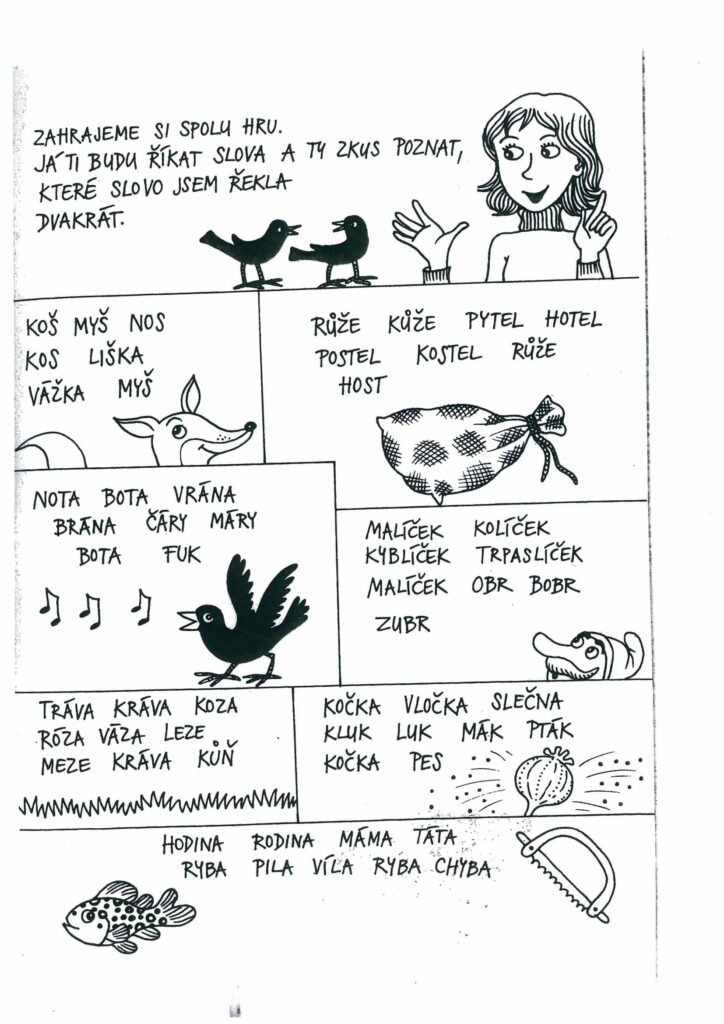 ZAHRAJEME SI SPOLU HRU.
JÁ TI BUDU ŘÍKAT SLOVA A TY ZKUS POZNAT,
KTERÉ SLOVO JSEM ŘEKLA
DVAKRÁT.
KOŠ MYŠ NOS
KOS LIŠKA
VÁŽKA MYŠ
RŮŽE KŮŽE PYTEL HOTEL
POSTEL KOSTEL RŮŽE
HOST
NOTA BOTA VRÁNA
BRÁNA ČÁRY MÁRY
BOTA FUK
MALÍČEK KOLÍČEK
KYBLÍČEK TRPASLÍČEK
MALÍČEK OBR BOBR
ZUBR
TRÁVA KRÁVA KOZA
RÓZA VÁZA LEZE
MEZE KRÁVA KŮŇ
KOČKA VLOČKA SLEČNA
KLUK LUK MÁK PTÁK
KOČKA PES
HODINA RODINA MÁMA TÁTA
RYBA PILA VÍLA RYBA CHYBA